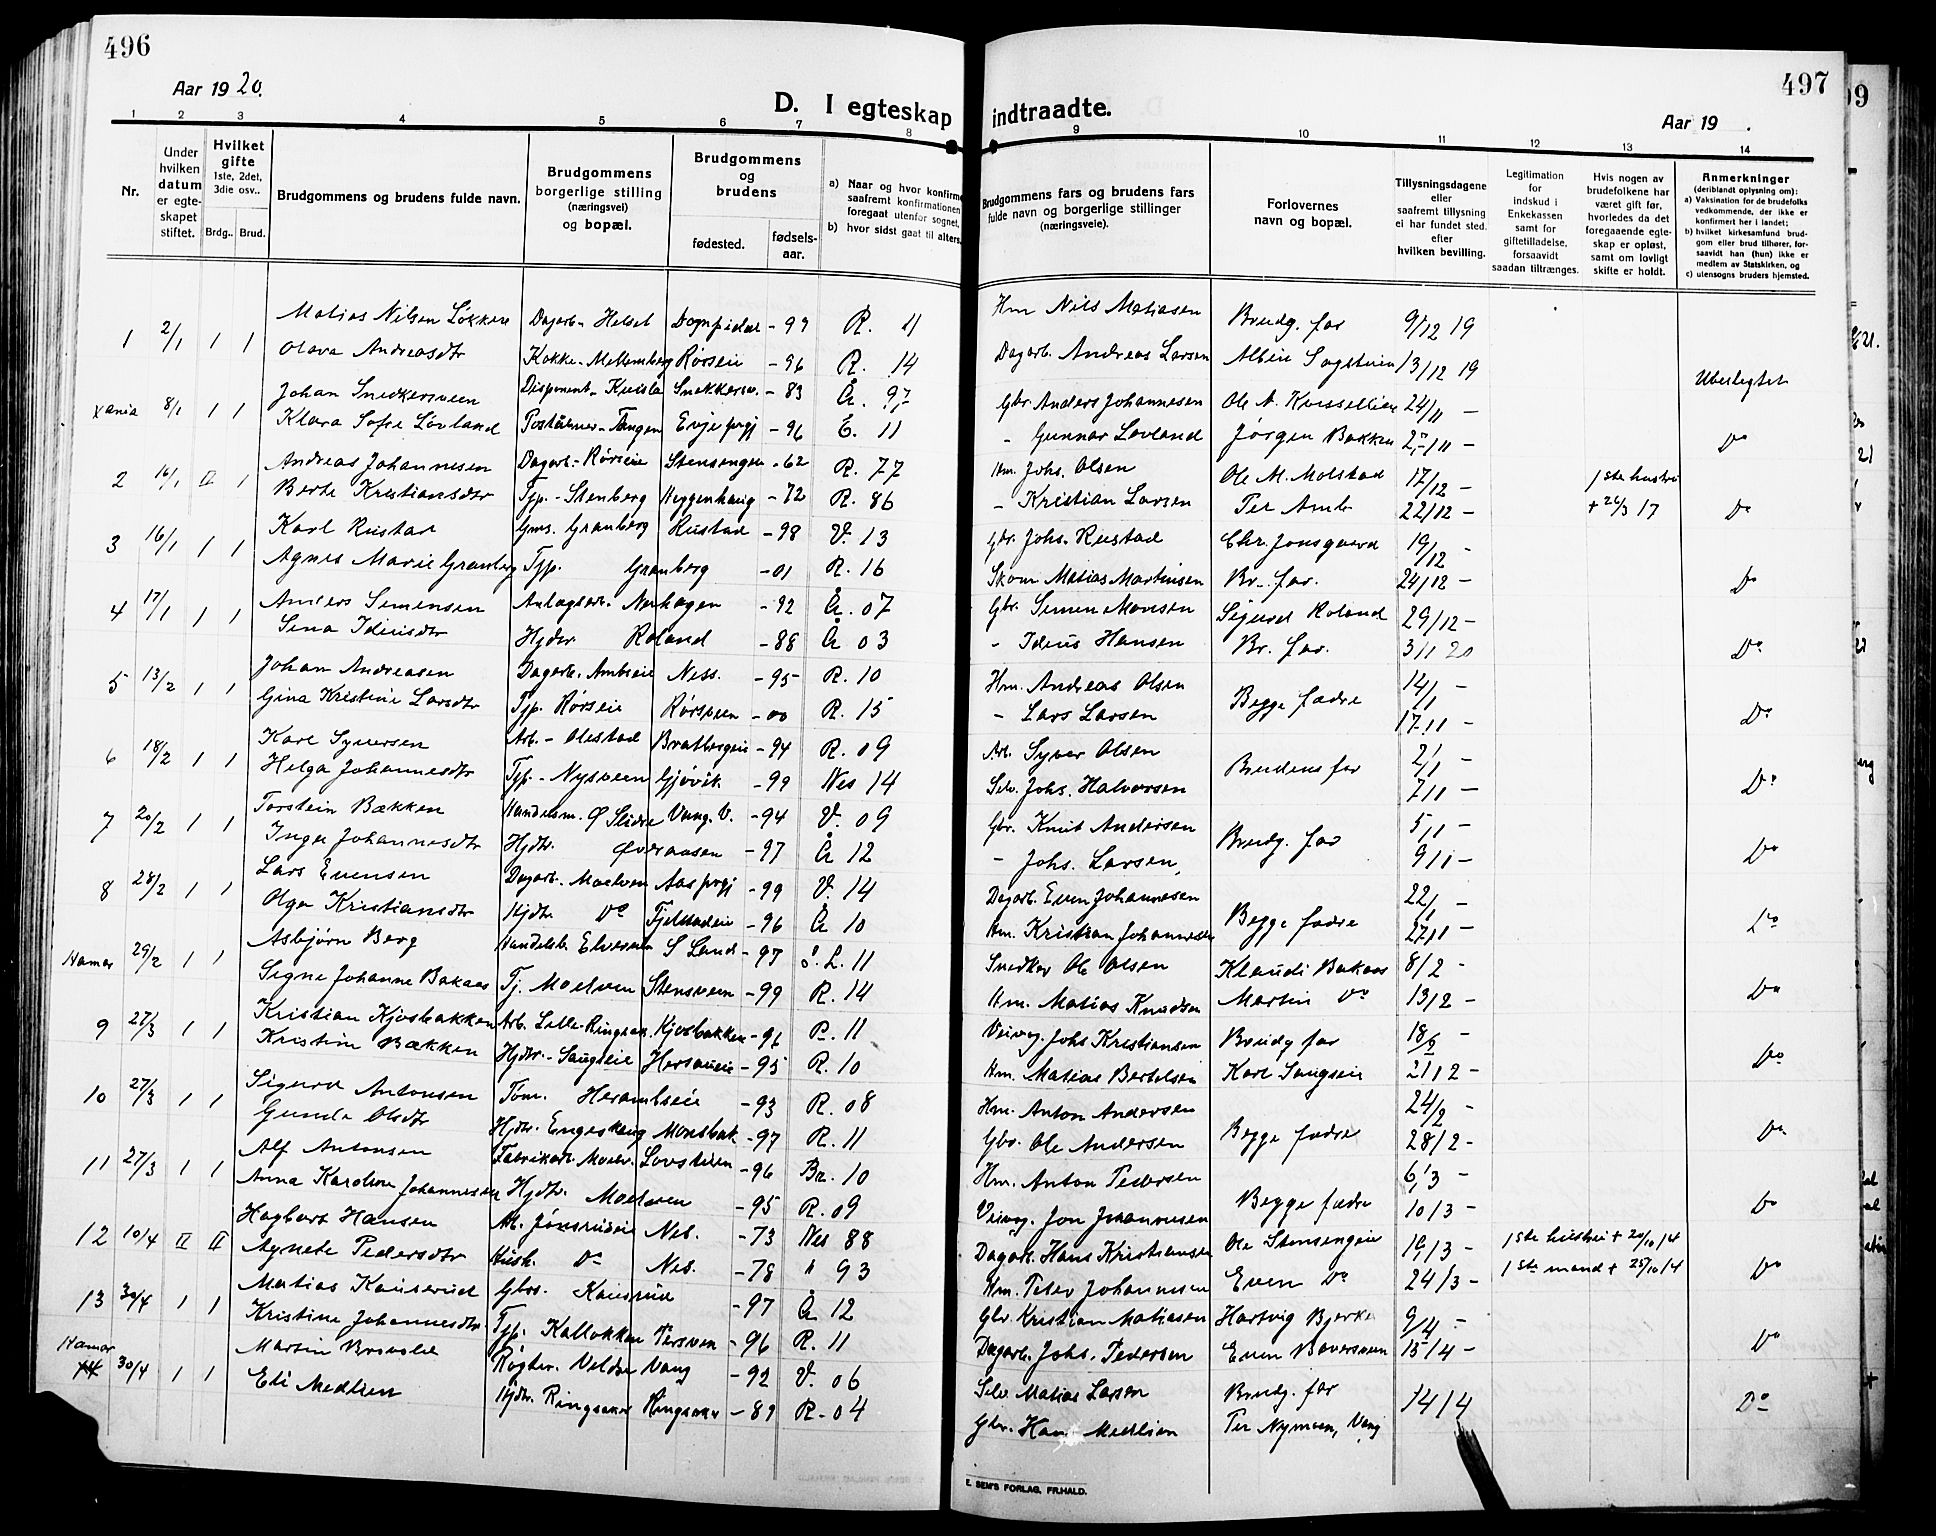 496
Aar 1920.
D. I egteskap
1 2 3 4 5 6 7 8
Nr.
Under hvilken datum er egteskapet stiftet.
Hvilket gifte 1ste, 2det, 3die osv..
Brdg.. Brud.
Brudgommens og brudens fulde navn.
Brudgommens borgerlige stilling (næringsvei) og bopæl.
Brudgommens og brudens
fødested. fødsels-aar.
a) Naar og hvor konfirme
saafremt konfirmationen
foregaat utenfor sognet,
b) hvor sidst gaat til alters.
1 2/1 1 1 Matias Nilsen Løkken Dagarb. Helset - 99 R. 11
Olava Andreasdtr Kokke - Mellemberg Rørseie - 96 R. 14
Xania 8/1 1 1 Johan Snedkersveen Disponent - Snekkersv. - 83 Å. 97
Klara Sofie Løvland - Tangen Evje prgj - 96 E. 11
2 16/1 II 1 Andreas Johannesen Dagarb. - Rørseie Stensengen - 62 R. 77
Berte Kristiansdtr Tjp. - Stenberg Heggenhaug - 72 R. 86
3 16/1 1 1 Karl Rustad Gms. Granberg Rustad - 98 V. 13
Agnes Marie Granberg Tjp. Granberg - 01 R. 16
4 17/1 1 1 Anders Simensen Anlægsarb. Nerhagen - 92 Å. 07
Sina Idiusdtr Hjdtr. Roland - 88 Å 03
5 13/2 1 1 Johan Andreasen Dagarb. Ambseie Ness. - 95 R. 10
Gina Kristine Larsdtr Tjp. Rørseie Rørsveen - 00 R. 15
6 18/2 1 1 Karl Syversen Arb. - Olestad Bratbergeie - 94 R. 09
Helga Johannesdtr Tjp. - Nysveen Gjøvik - 99 Nes 14
7 20/2 1 1 Torstein Bækken Handelsm. Ø Slidre Vang. V. - 94 V. 09
Inga Johannesdtr Hjdtr. Øveraasen - 97 Å 12
8 28/2 1 1 Lars Evensen Dagarb. Moelven Aas prgj - 99 V. 14
Olga Kristiansdtr Hjdtr. Do Fjelstadeie - 96 Å 10
Hamar 29/2 1 1 Asbjørn Berg Handelsb. Elvesveen S Land - 97 S. L. 11
Signe Johanne Bakaas Tj. Moelven Stensveen - 99 R. 14
9 27/3 1 1 Kristian Kjosbakken Arb. Lille-Ringsak. Kjosbakken - 96 R. 11
Kristine Bækken Hjdtr. - Saugseie - 95 R. 10
10 27/3 1 1 Sigurd Antonsen Tøm. Herambseie - 93 R. 08
Gunda Olsdtr Hjdtr. Engeshaug Monsbak - 97 R. 11
11 27/3 1 1 Alf Antonsen Fabrikarb. Moelv. - 96 Br. 10
Anna Karoline Johannesen Hjdtr. Moelven - 95 R. 09
12 10/4 II II Hagbart Hansen Arb. Jønsrudeie Nes. - 73 Nes 88
Agnete Pedersdtr Hush. Do Nes. - 78 " 93
13 30/4 1 1 Matias Kauserud Gbrs. Kausrud - 97 Å 12
Kristine Johannesdtr Tjp. Kallokken Persven - 96 R. 11
Hamar 14 30/4 1 1 Martin Brovold Røgter. Veldre Vang - 92 V. 06
Eli Medlien Hjdtr. Ringsaker Ringsaker - 89 R. 04
497
indtraadte.
Aar 19 .
9 10 11 12 13 14
Brudgommens fars og brudens fars
fulde navn og borgerlige stillinger
(næringsveie).
Forlovernes
navn og bopæl.
Tillysningsdagene
eller
saafremt tillysning
ei har fundet sted.
efter
hvilken bevilling.
Legitimation
for
indskud i
Enkekassen
samt for
giftetilladelse,
forsaavidt
saadan tiltrænges.
Hvis nogen av
brudefolkene har
været gift før,
hvorledes da det
foregaaende egte-
skap er opløst,
samt om lovligt
skifte er holdt.
Anmerkninger
(deriblandt oplysning om):
a) Vaksination for de brudefolks
vedkommende, der ikke er
konfirmert her i landet;
b) hvilket kirkesamfund brud-
gom eller brud tilhører, for-
saavidt han (hun) ikke er
medlem av Statskirken, og
c) utensogns bruders hjemsted.
Hm Nils Matiasen Brudg. far 9/12 19
Dagarb. Andreas Larsen Albin Sagstuen 13/12 19
Gbr. Anders Johannesen Ole A. 24/11 - Ubeslegtet
- Gunnar Løvland Jørgen Bakken /11 - Do
Hm. Johs. Olsen Ole M. Molstad 17/12 - 1ste hustru
- Kristian Larsen Per Amb 22/12 - + 26/3 17 Do
Gbr. Johs. Rustad Chr. Jonsgaard 19/12 -
Skom Matias Martinsen Br. far. 24/12 - Do
Gbr. Simen Monsen Sigurd Roland 29/12 -
- Idius Hansen Br. far. 3/1 20 Do
Hm. Andreas Olsen Begge fædre 14/1 -
- Lars Larsen 17/1 - Do
Arb. Syver Olsen Brudens far 2/1 -
Selv. Johs. Halvorsen 7/1 - Do
Gbr. Knut Andersen Brudg. far 5/1 -
- Johs. Larsen, 9/1 - Do
Dagarb. Even Johannesen Begge fædre 22/1 -
Hm. Kristian Johannesen 27/1 - Do
Snedker Ole Olsen Klaudi Bakaas 8/2 -
Hm. Matias Knudsen Martin Do 13/2 - Do
Veivog. Johs Kristiansen Brudg far 18/2 -
Hm. Matias Bertelsen Karl Saugseie 21/2 - Do
Hm. Anton Andersen Begge fædre 24/2 -
Gbr. Ole Andersen 28/2 - Do
Hm. Anton Pedersen Begge fædre 6/3 -
Veivog. Jon Johannesen 10/3 - Do
Dagarb. Hans Kristiansen Ole Stensengeie 19/3 - 1ste hustru + 20/10 14
Hm. Peder Johannesen Even Do 24/3 - 1ste mand + 25/10 14 Do
Gbr. Kristian Matiasen Hartvig Bjerke 9/4 -
Dagarb. Johs. Pedersen Even Bøversveen 15/4 - Do
Selv Matias Larsen Brudg. far 14/4
Gbr. Hans Medlien Per Nymoen, Vang Do
E. SEM'S FORLAG, FR.HALD.